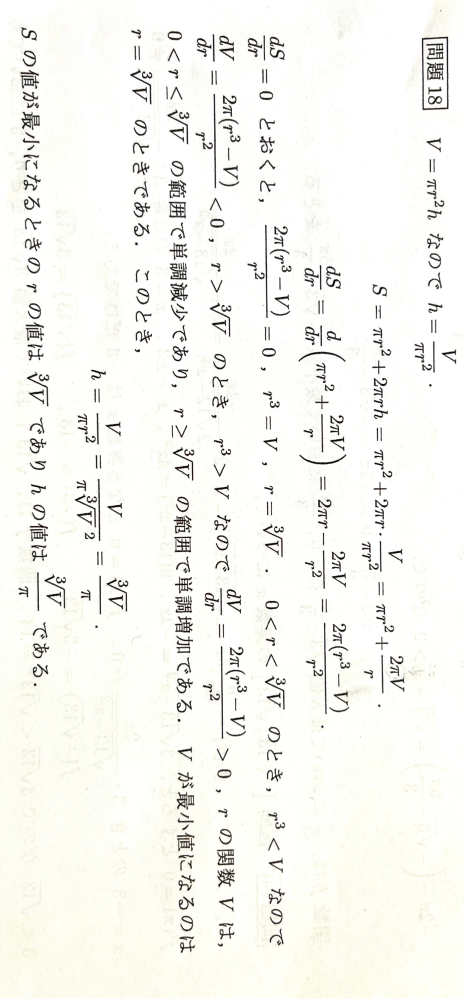 問題 18　V = πr²h なので h = V/(πr²) .
S = πr² + 2πrh = πr² + 2πr · V/(πr²) = πr² + 2πV/r .
dS/dr = d/dr (πr² + 2πV/r) = 2πr − 2πV/r² = 2π(r³ − V)/r² .
dS/dr = 0 とおくと， 2π(r³ − V)/r² = 0 , r³ = V , r = ∛V . 0 < r < ∛V のとき， r³ < V なので
dV/dr = 2π(r³ − V)/r² < 0 , r > ∛V のとき， r³ > V なので dV/dr = 2π(r³ − V)/r² > 0 , r の関数 V は，
0 < r ≤ ∛V の範囲で単調減少であり， r ≥ ∛V の範囲で単調増加である． V が最小値になるのは
r = ∛V のときである． このとき，
h = V/(πr²) = V/(π∛V²) = ∛V/π .
S の値が最小になるときの r の値は ∛V であり h の値は ∛V/π である．